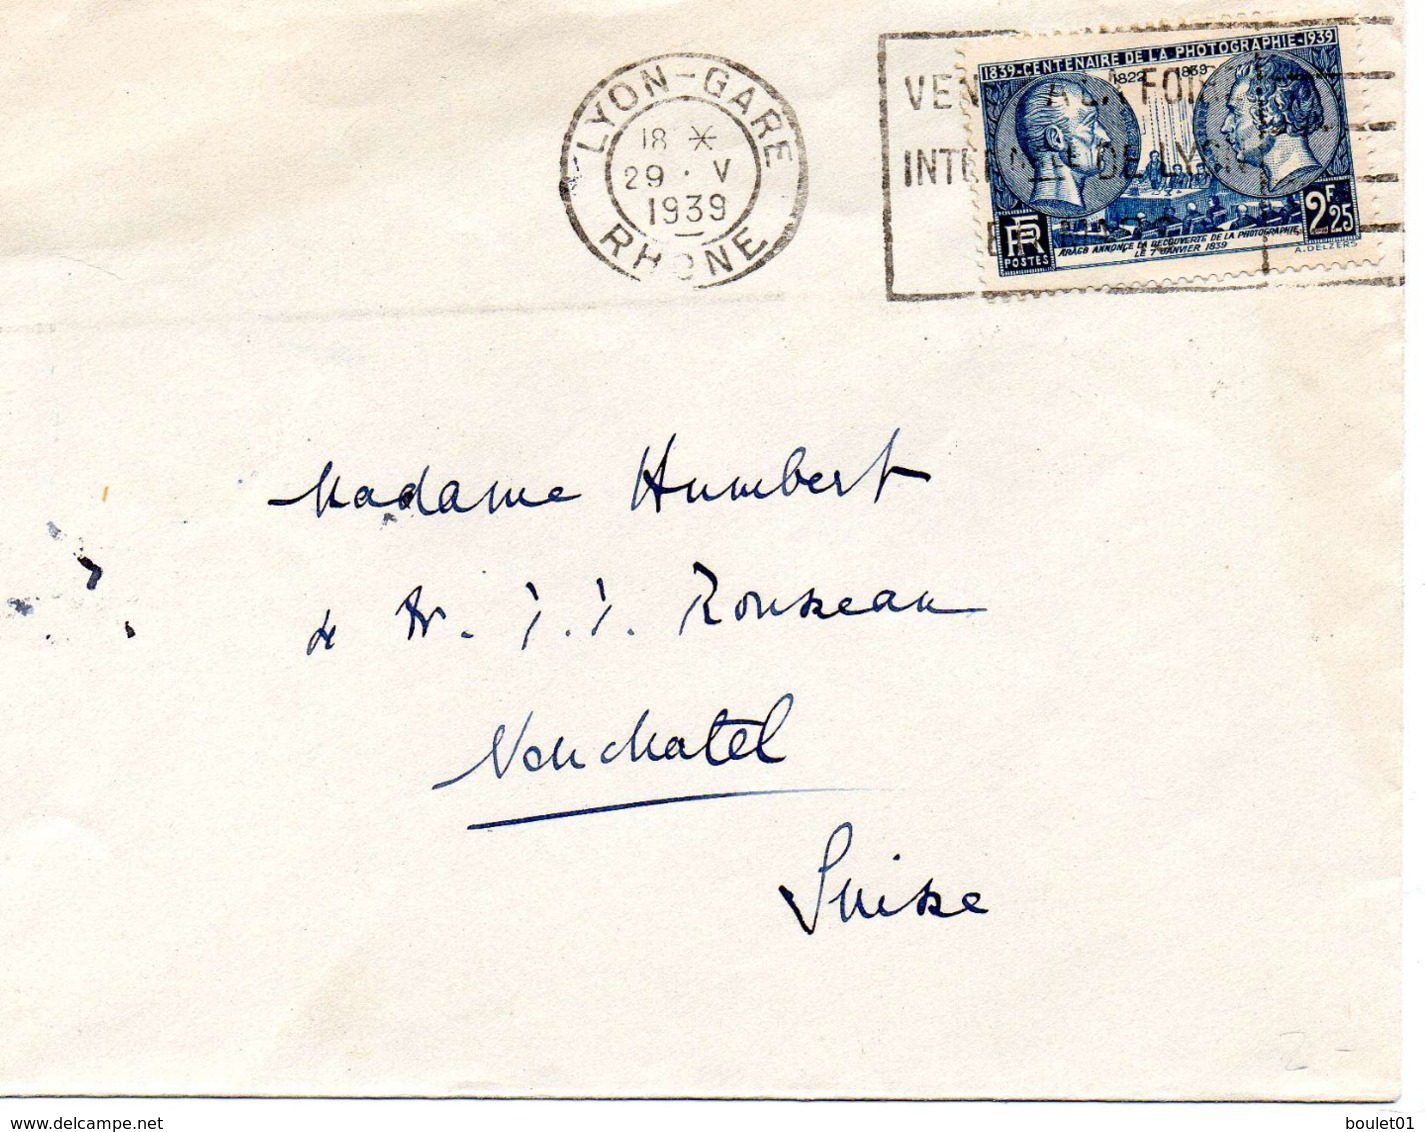 LYON-GARE
18 *
29 · V
1939
RHONE
VEN A LA FOIRE
INTER DE LYON
1839-CENTENAIRE DE LA PHOTOGRAPHIE-1939
1822 1839
RF
POSTES
2F25
ARAGO ANNONCE LA DECOUVERTE DE LA PHOTOGRAPHIE
LE 7 JANVIER 1839
A.DELZERS
Madame Humbert
4 Av. J. J. Rousseau
Neuchatel
Suisse
www.delcampe.net
boulet01